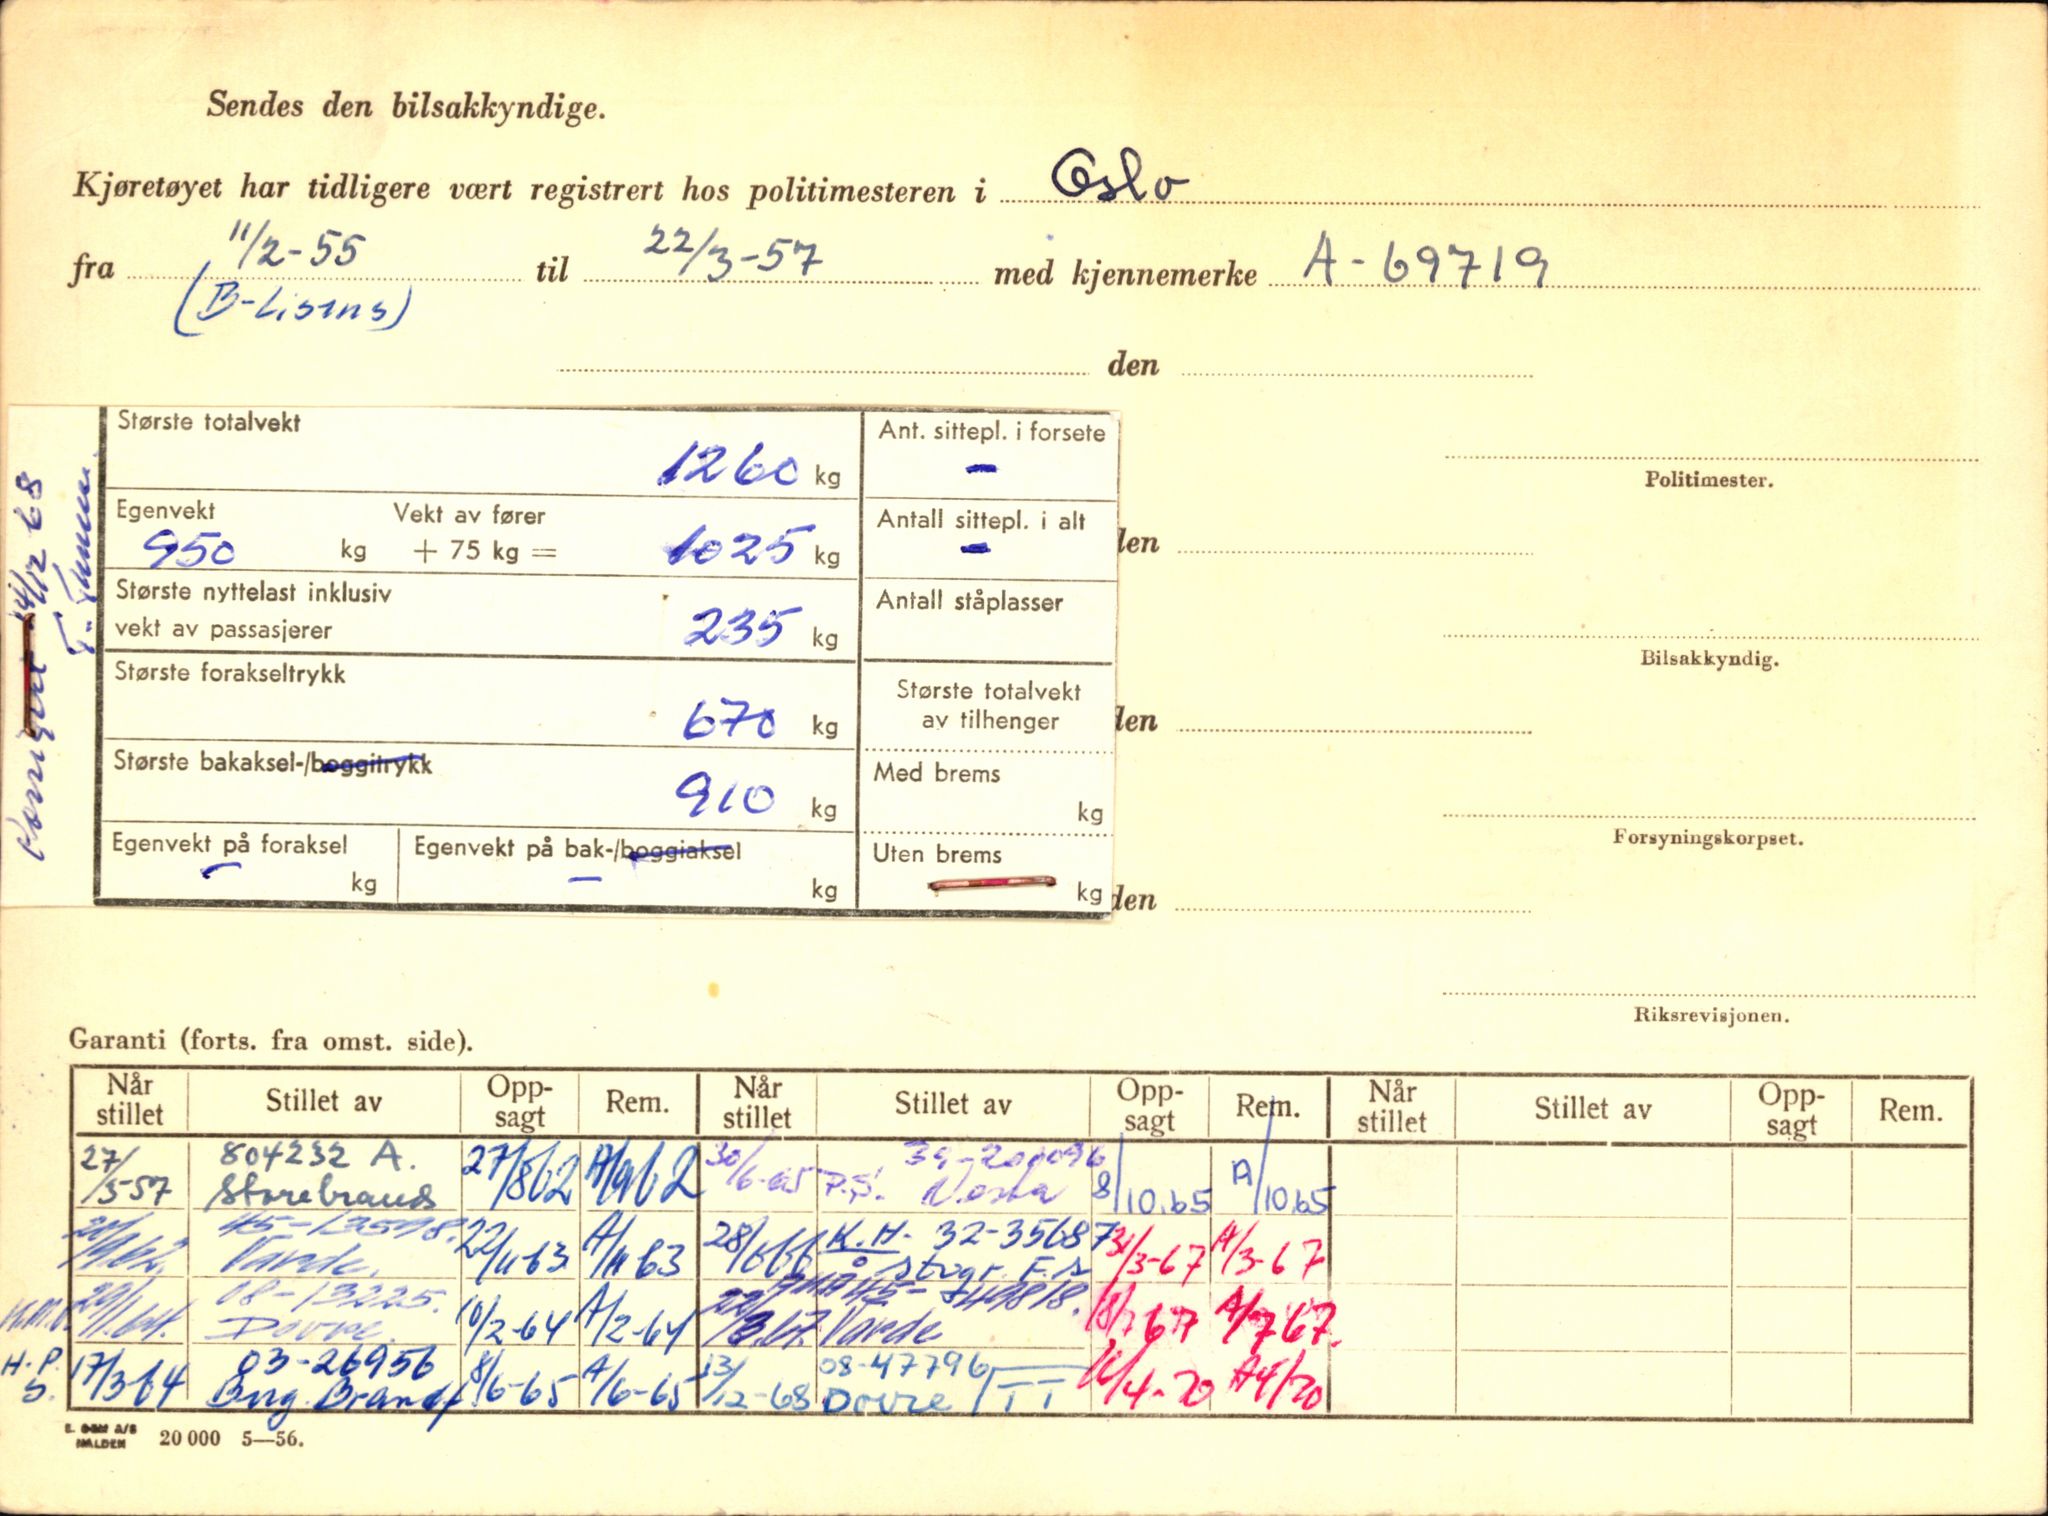 Sendes den bilsakkyndige.
Kjøretøyet har tidligere vært registrert hos politimesteren i Oslo
fra 11/2-55 til 22/3-57 med kjennemerke A-69719
(B-Lisens)
den
Største totalvekt 1260 kg
Ant. sittepl. i forsete –
Politimester.
Egenvekt 950 kg Vekt av fører + 75 kg = 1025 kg
Antall sittepl. i alt –
den
Største nyttelast inklusiv
vekt av passasjerer 235 kg
Antall ståplasser
Bilsakkyndig.
Største forakseltrykk 670 kg
Største totalvekt
av tilhenger
den
Største bakaksel-/boggitrykk 910 kg
Med brems kg
Forsyningskorpset.
Egenvekt på foraksel – kg
Egenvekt på bak-/boggiaksel – kg
Uten brems kg
den
14/12 68
Riksrevisjonen.
Garanti (forts. fra omst. side).
Når stillet Stillet av Oppsagt Rem. Når stillet Stillet av Oppsagt Rem. Når stillet Stillet av Oppsagt Rem.
27/5-57 804232 A. Storebrand 27/8 62 A/9 62
30/6-65 P.S. Norla 8/10.65 A/10.65
Varde. 22/11 63 A/11 63
28/6 66 K.H. 32-35687 Stvgr. F.s 31/3-67 A/3-67
29/1.64. 08-13225. Dovre. 10/2-64 A/2-64
Varde 18/7 67 A/7 67.
H.P.S. 17/3 64 03-26956 Brand 8/6-65 A/6-65
13/12-68 08-47796 Dovre TT /4-70 A4/70
HALDEN 20 000 5—56.